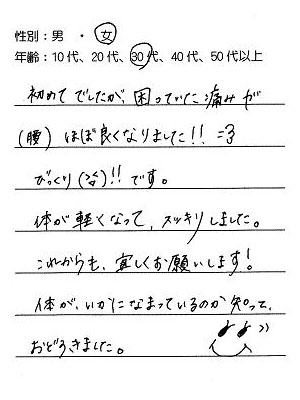 性別：男 ・ 女
年齢：10代、20代、30代、40代、50代以上
初めてでしたが、困っていた痛みが
(腰) ほぼ良くなりました!!
びっくり!!です。
体が軽くなって、スッキリしました。
これからも、宜しくお願いします!
体が、いかになまっているのか知って、
おどろきました。